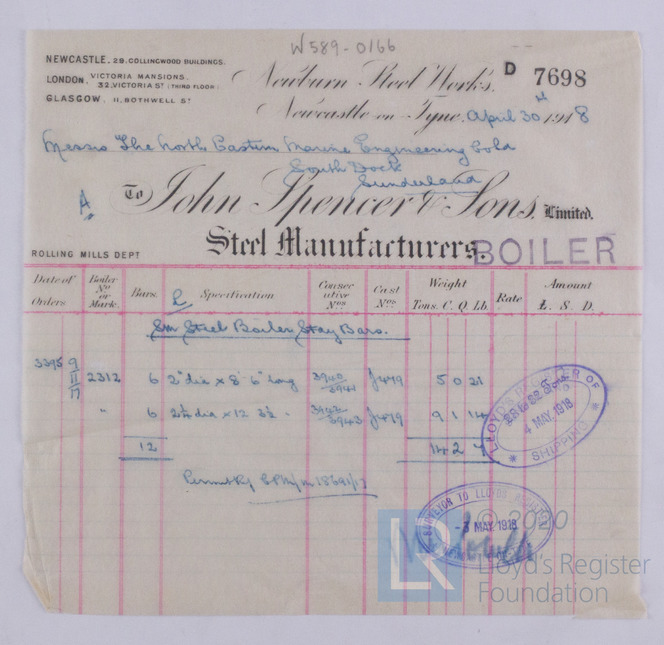 W589-0166
NEWCASTLE, 29, COLLINGWOOD BUILDINGS.
LONDON, VICTORIA MANSIONS,
32, VICTORIA ST (THIRD FLOOR)
GLASGOW, 11, BOTHWELL ST
Newburn Steel Works,
D 7698
Newcastle-on-Tyne, April 30th 1918
Messrs The North Eastern Marine Engineering Co Ld
South Dock
Sunderland
A
To John Spencer & Sons, Limited.
Steel Manufacturers.
BOILER
ROLLING MILLS DEPT
Date of Orders. Boiler No or Mark. Bars. Specification Consecutive Nos Cast Nos. Weight Tons. C. Q. Lb. Rate Amount £. S. D.
Sm Steel Boiler Stay Bars.
3395 9/11/17 2312 6 2" dia x 8' 6" long 3940/3941 J479 5 0 21
" 6 2¼ dia x 12 3½ " 3942/3943 J479 9 1 14
12 14 2 7
Permit
LLOYD'S REGISTER OF SHIPPING
4 MAY. 1918
SURVEYOR TO LLOYDS REGISTER
-3 MAY 1918
© 2020
LR
Lloyd's Register
Foundation